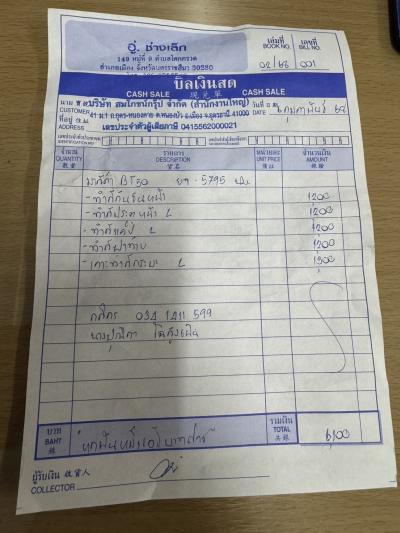 อู่ ช่างเล็ก
149 หมู่ที่ 9 ตำบลโคกกรวด
อำเภอเมือง จังหวัดนครราชสีมา 30280
เล่มที่ เลขที่
BOOK NO. BILL NO.
02/68 001
บิลเงินสด
CASH SALE 現兌單 CASH SALE
นาม บริษัท สมโภชน์กรุ๊ป จำกัด (สำนักงานใหญ่) วันที่
CUSTOMER 41 ม.1 ถ.อุดร-หนองคาย ต.หมากแข้ง อ.เมือง จ.อุดรธานี 41000 DATE กุมภาพันธ์ 68
ที่อยู่
ADDRESS เลขประจำตัวผู้เสียภาษี 0415562000021
จำนวน รายการ หน่วยละ จำนวนเงิน
QUANTITY DESCRIPTION UNIT PRICE AMOUNT
มาสด้า BT50 ยจ-5795
-ทำสีกันชนหน้า 1200
-ทำสีประตูหน้า L 1200
-ทำสีแค็ป L 1200
-ทำสีฝาท้าย 1200
-เคาะทำสีกระบะ L 1300
กสิกร 034 1411 599
บาท รวมเงิน
BAHT หกพันหนึ่งร้อยบาทถ้วน TOTAL 6,100
ผู้รับเงิน 收貨人
COLLECTOR